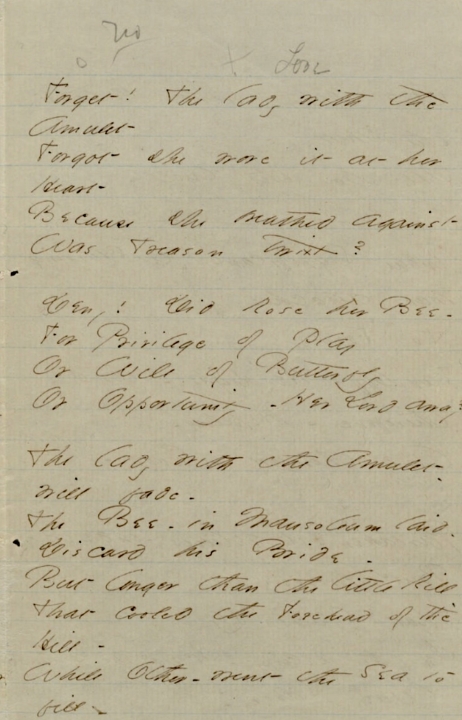 No
Love
Forget! The lady with the
Amulet
Forgot she wore it at her
Heart
Because she breathed against
Was Treason twixt?

Deny! Did Rose her Bee -
For Privilege of Play
Or Wile of Butterfly
Or Opportunity - Her Lord away?

The lady with the Amulet -
will fade -
The Bee - in Mausoleum laid -
Discard his Bride -
But longer than the little Rill
That cooled the Forehead of the
Hill -
While Other - went the Sea to
fill -